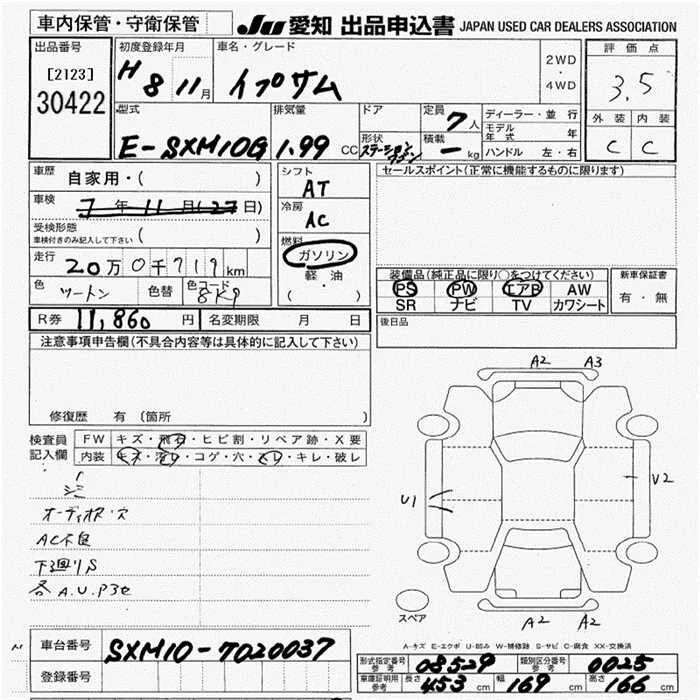 車内保管・守衛保管
JU 愛知 出品申込書 JAPAN USED CAR DEALERS ASSOCIATION
出品番号
[2123]
30422
初度登録年月
H 8 11月
車名・グレード
イプサム
2WD
・
4WD
評価点
3.5
外装 内装
C C
型式
E-SXM10G
排気量
1.99 CC
ドア
形状
ステーションワゴン
定員
7人
積載
ー kg
ディーラー・並行
モデル年式 年
ハンドル 左・右
車歴 自家用・( )
車検 7年11月(27日)
受検形態
車検付きのみ記入して下さい ( )
走行 20万0千719km
色 ツートン 色替 色コード 8K9
シフト
AT
冷房
AC
燃料
ガソリン
・
軽油
・
( )
セールスポイント(正常に機能するものに限ります)
装備品(純正品に限り○をつけてください)
PS PW エアB AW
SR ナビ TV カワシート
新車保証書
有・無
R券 11,860円 名変期限 月 日
後日品
注意事項申告欄(不具合内容等は具体的に記入して下さい)
修復歴 有(箇所 )
検査員記入欄
FW キズ・飛石・ヒビ割・リペア跡・X要
内装 キズ・汚レ・コゲ・穴・スレ・キレ・破レ
オーディオパネ・穴
AC不良
下廻りS
各A.U.P3セ
A2 A3
U1
V2
A2 A2
スペア
A-キズ E-エクボ U-凹み W-補修跡 S-サビ C-腐食 XX-交換済
車台番号 SXM10-7020037
登録番号
形式指定番号 参考 08529
類別区分番号 参考 0025
車庫証明用 参考 長さ 453 cm 幅 169 cm 高さ 166 cm